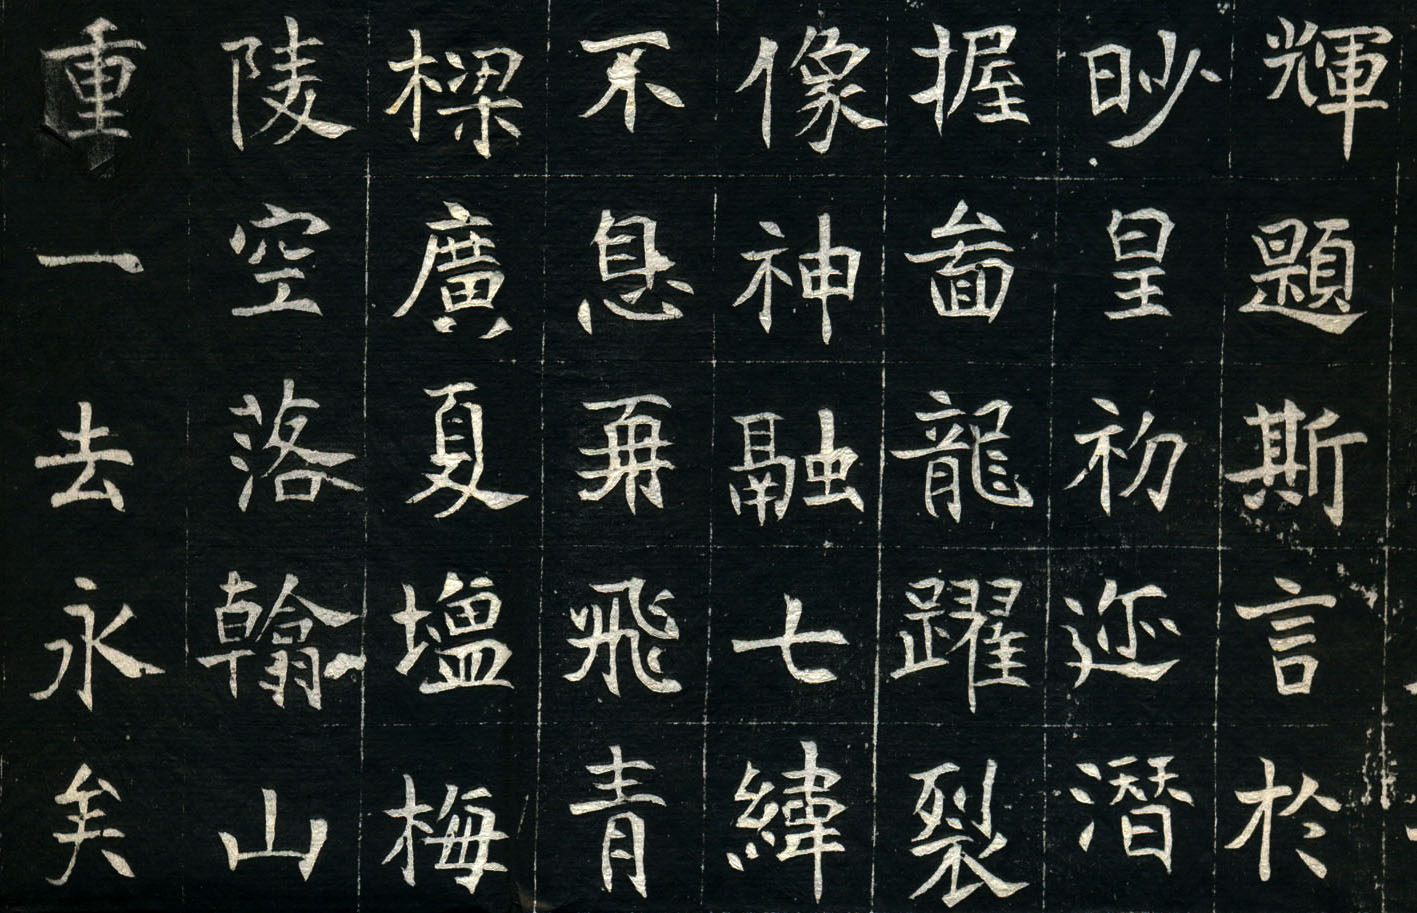 輝題斯言於
眇皇初迩潛
握啚龍躍裂
像神融七緯
不息再飛青
樑廣夏塩梅
陵空落翰山
重一去永矣